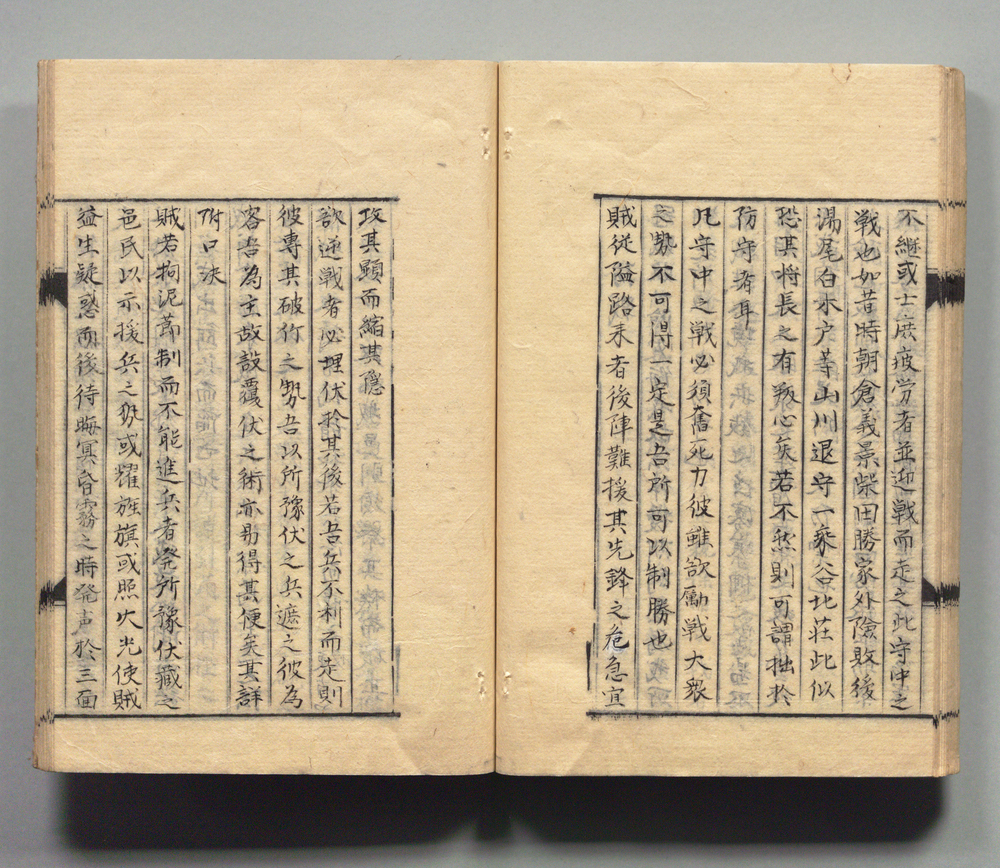 不継或士庶疲労者並迎戦而走之此守中之
戦也如昔時朝倉義景柴田勝家外険敗後
湯尾白水戸等山川退守一乗谷北荘此似
恐其将長之有叛心矣若不然則可謂拙於
防守者耳
凡守中之戦必須奮死力彼雖欲励戦大衆
之勢不可得之定是吾所可以制勝也
賊従隘路来者後陣難援其先鋒之危急宜
攻其顕而縮其隠
欲逆戦者必埋伏於其後若吾兵不利而走則
彼専其破竹之勢吾以所豫伏之兵遮之彼為
客吾為主故設覆伏之術亦易得其便矣其詳
附口決
賊若拘泥節制而不能進兵者発所豫伏蔵之
邑民以示援兵之勢或耀旌旗或照火光使賊
益生疑惑而後待晦冥昏霧之時発声於三面